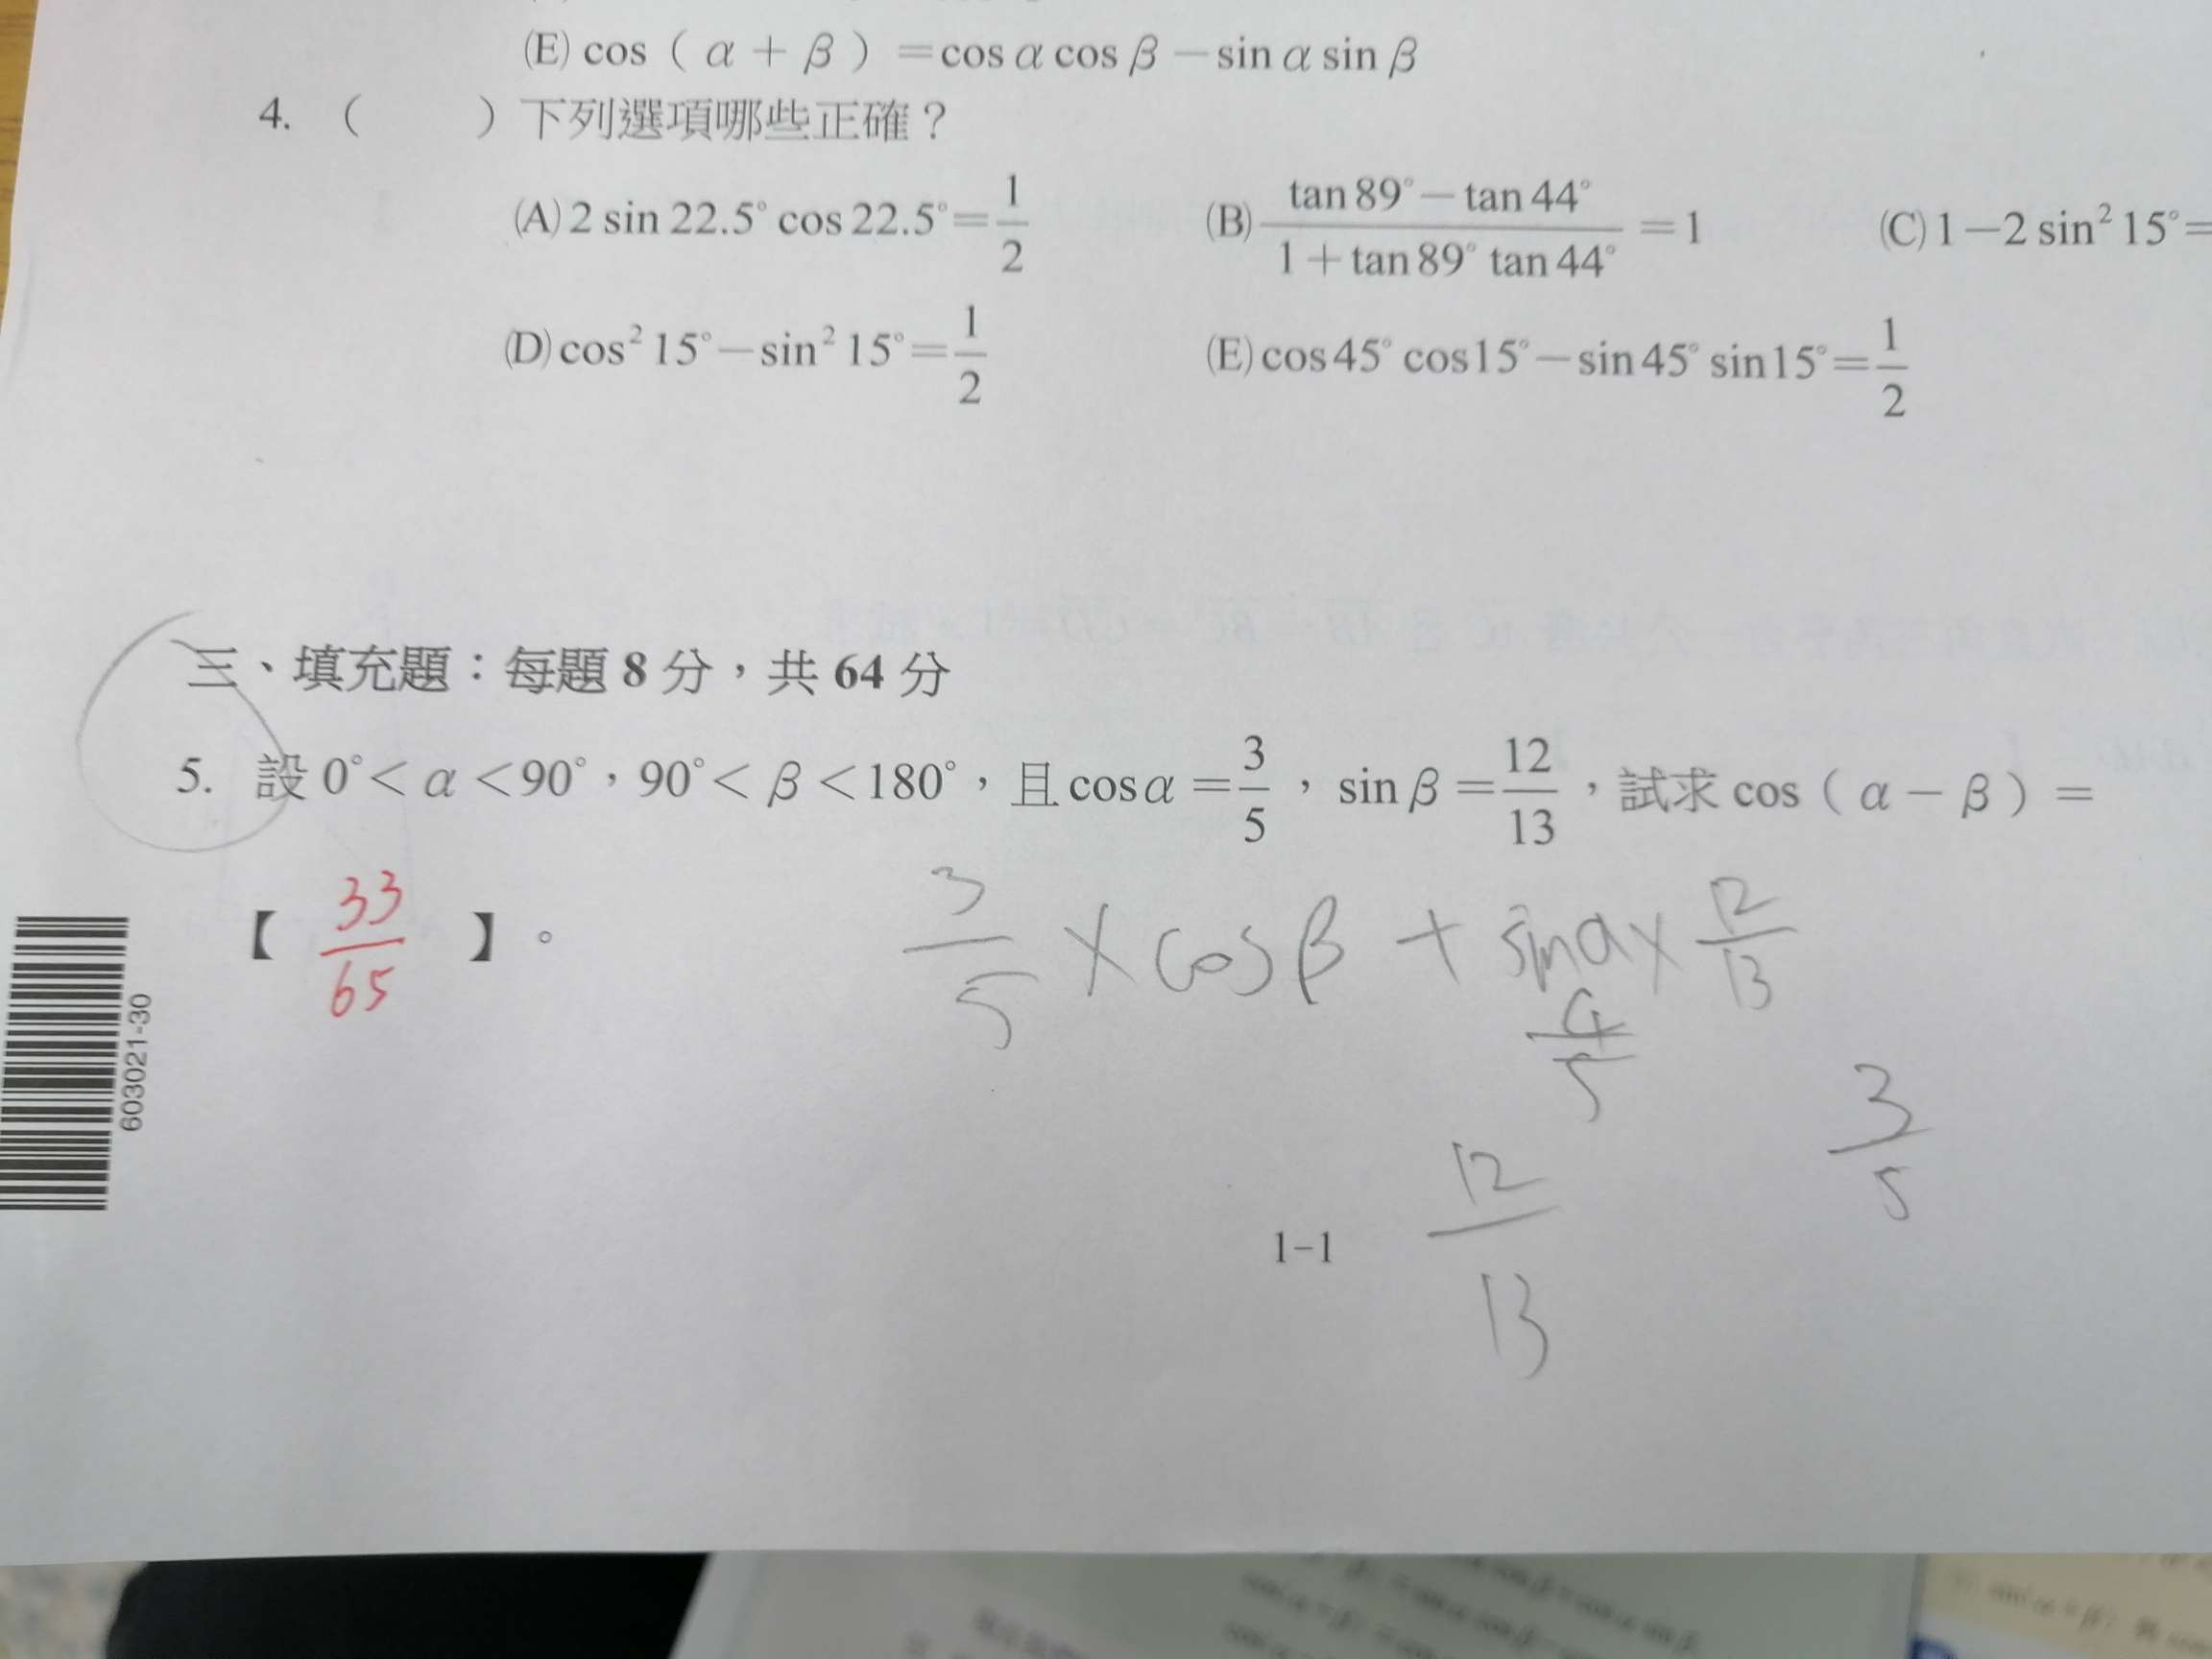 (E) cos ( α + β ) =cos α cos β －sin α sin β
4. (　　) 下列選項哪些正確？
(A) 2 sin 22.5°cos 22.5°=1/2 (B) (tan 89°－tan 44°)/(1＋tan 89° tan 44°) =1 (C) 1－2 sin² 15°=
(D) cos² 15°－sin² 15°=1/2 (E) cos 45° cos 15°－sin 45° sin 15°=1/2
三、填充題：每題 8 分，共 64 分
5. 設 0°< α <90°，90°< β <180°，且 cos α =3/5，sin β =12/13，試求 cos ( α － β ) =
【 33/65 】。
3/5 × cos β + sin α × 12/13
4/5
3/5
12/13
1-1
603021-30